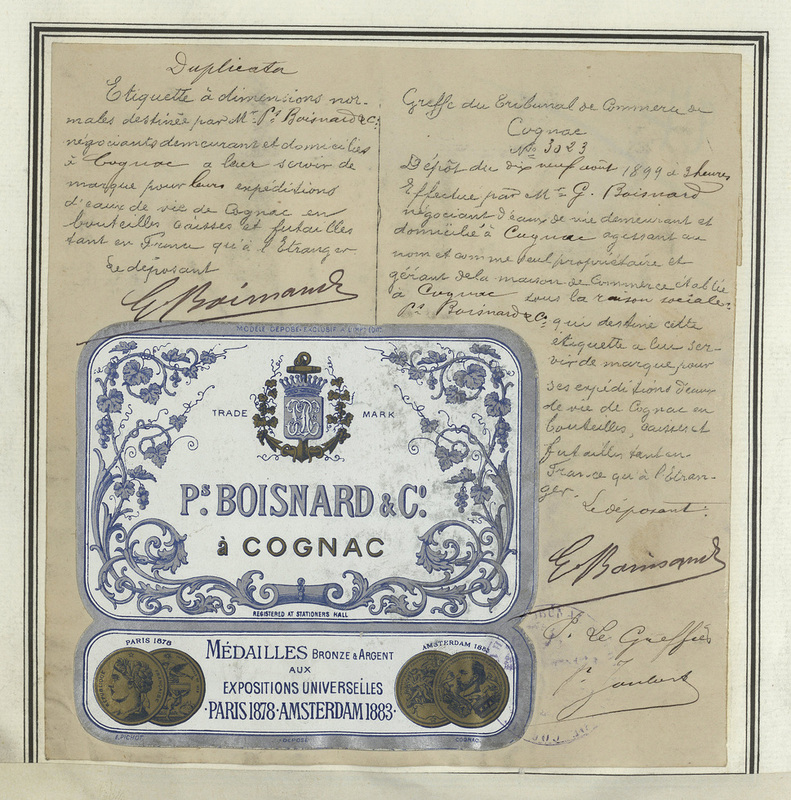 Duplicata
Etiquette à dimensions nor-
males destinée par Mrs Ps Boisnard & Co
négociants demeurant et domiciliés
à Cognac a leur servir de
marque pour leurs expéditions
d'eaux de vie de Cognac en
bouteilles caisses et futailles
tant en France qu'à l'Etranger
Le déposant
G Boisnard
Greffe du Tribunal de Commerce de
Cognac
No 3023
Dépôt du dix neuf août 1899 à 3 heures
Effectué par Mr G. Boisnard
négociant d'eaux de vie demeurant et
domicilié à Cognac agissant au
nom et comme seul propriétaire et
gérant de la maison de Commerce établie
à Cognac sous la raison sociale:
Ps Boisnard & Co qui destine cette
etiquette a leur ser-
vir de marque pour
ses expéditions d'eaux
de vie de Cognac en
bouteilles, caisses et
futailles tant en
France qu'à l'Etran-
ger.
Le déposant:
G Boisnard
P. Le Greffier
Joubert
MODÈLE DÉPOSÉ
TRADE MARK
Ps. BOISNARD & Co.
à COGNAC
REGISTERED AT STATIONERS HALL
PARIS 1878
MÉDAILLES BRONZE & ARGENT
AUX
EXPOSITIONS UNIVERSELLES
·PARIS 1878·AMSTERDAM 1883·
AMSTERDAM 1883
E. PICHOT
DÉPOSÉ
COGNAC